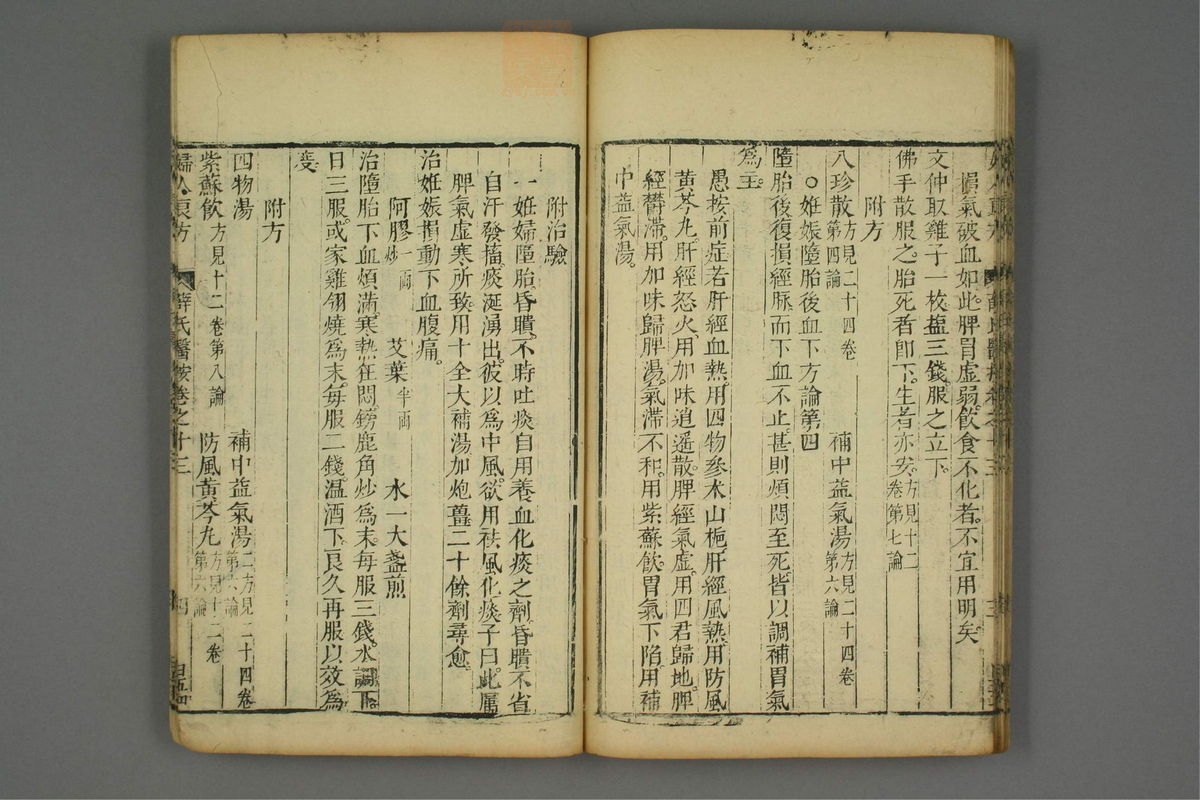 損氣破血如此脾胃虛弱飲食不化者不宜用明矣
文仲取雞子一枚鹽三錢服之立下
佛手散服之胎死者即下生者亦安方見十二卷第七論
附方
八珍散方見二十四卷第四論 補中益氣湯方見二十四卷第六論
○姙娠墮胎後血下方論第四
墮胎後復損經脉而下血不止甚則煩悶至死皆以調補胃氣
為主
愚按前症若肝經血熱用四物參朮山梔肝經風熱用防風
黃芩丸肝經怒火用加味逍遥散脾經氣虛用四君歸地脾
經欝滯用加味歸脾湯氣滯不和用紫蘇飲胃氣下陷用補
中益氣湯
附治驗
一姙婦墮胎昏聵不時吐痰自用養血化痰之劑昏聵不省
自汗發搐痰涎湧出彼以為中風欲用祛風化痰子曰此屬
脾氣虛寒所致用十全大補湯加炮薑二十餘劑尋愈
治姙娠損動下血腹痛
阿膠炒一兩 艾葉半兩 水一大盞煎
治墮胎下血煩滿寒熱狂悶鎊鹿角炒為末每服三錢水調下
日三服或家雞翎燒為末每服二錢温酒下良久再服以效為
度
附方
四物湯 補中益氣湯二方見二十四卷第六論
紫蘇飲方見十二卷第八論 防風黃芩丸方見十二卷第六論
婦人良方 薛氏醫按卷之十三 四